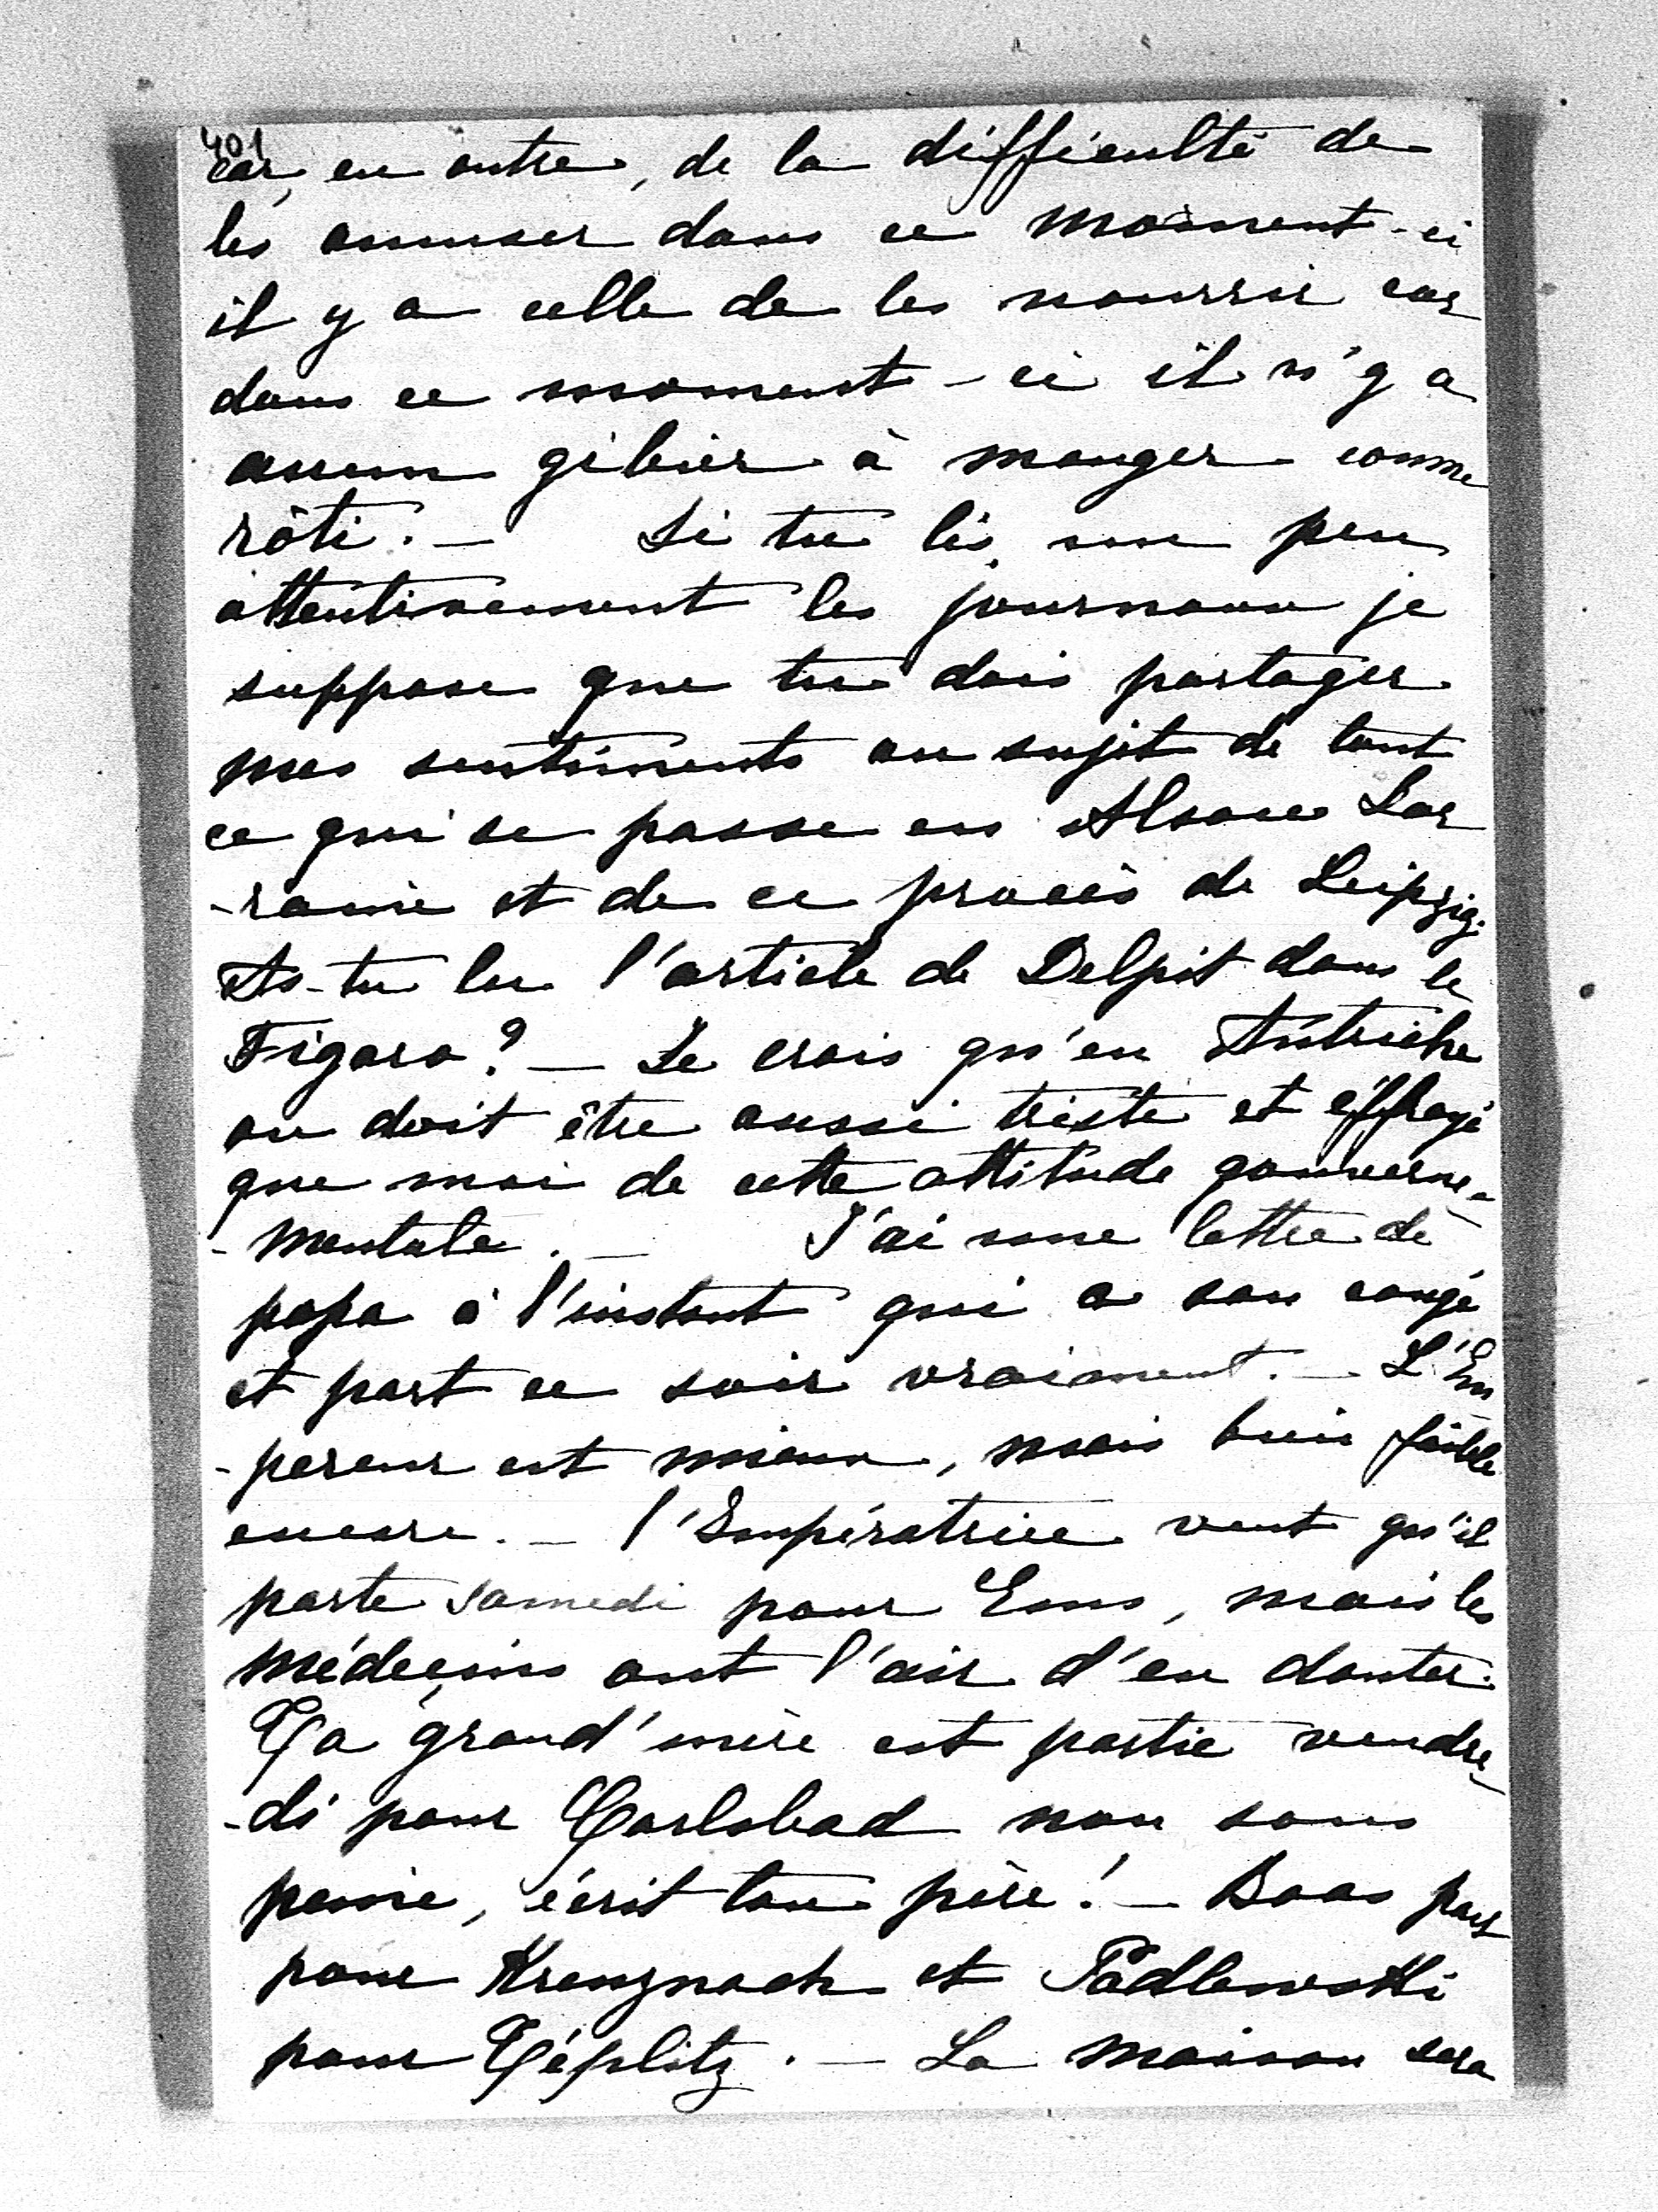 401
car, en outre, de la difficulté de
les amuser dans ce moment-ci
il y a celle de les nourrir car
dans ce moment-ci il n'y a
aucun gibier à manger comme
rôti. — Si tu lis un peu
attentivement les journaux je
suppose que tu dois partager
mes sentiments au sujet de tout
ce qui se passe en Alsace Lor
-raine et de ce procès de Leipzig.
As-tu lu l'article de Delpit dans le
Figaro? — Je crois qu'en Autriche
on doit être aussi triste et effrayé
que moi de cette attitude gouverne-
-mentale. — J'ai une lettre de
papa à l'instant qui a son congé
et part ce soir vraiment. — L'Em
-pereur est mieux, mais bien faible
encore. — l'Impératrice veut qu'il
parte samedi pour Ems, mais les
médecins ont l'air d'en douter.
Ta grand'mère est partie vendre-
-di pour Carlsbad non sans
peine, écrit ton père! — Boas part
pour Kreuznach et Padlewski
pour Téplitz. — La maison sera